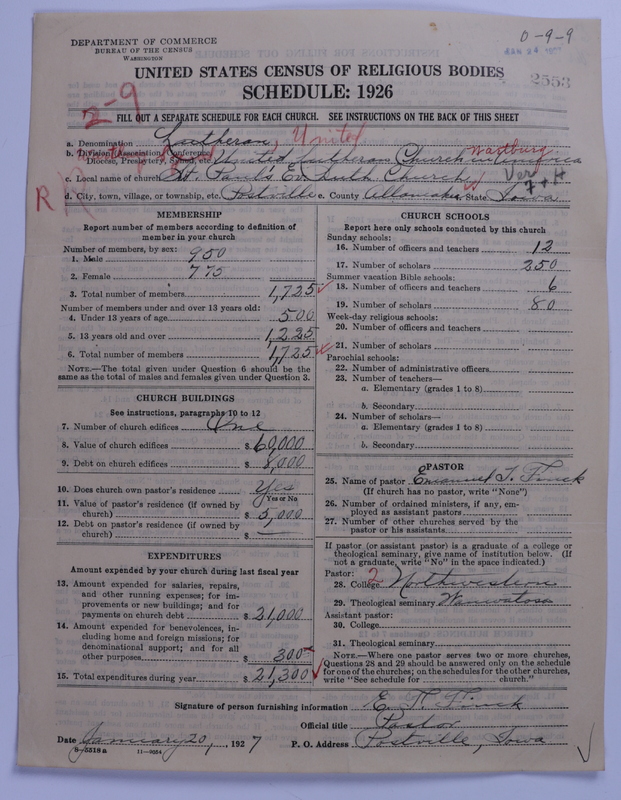 DEPARTMENT OF COMMERCE
BUREAU OF THE CENSUS
WASHINGTON
0-9-9
2553
UNITED STATES CENSUS OF RELIGIOUS BODIES
SCHEDULE: 1926
2-9
FILL OUT A SEPARATE SCHEDULE FOR EACH CHURCH. SEE INSTRUCTIONS ON THE BACK OF THIS SHEET
a. Denomination Lutheran, United
b. Division (Association, Conference, Diocese, Presbytery, Synod, etc. United Lutheran Church in America
Wartburg
c. Local name of church St. Paul's Ev. Luth. Church
Ver
7 + H
R
d. City, town, village, or township, etc. Postville e. County Allamakee State Iowa
MEMBERSHIP
Report number of members according to definition of member in your church
Number of members, by sex:
1. Male 950
2. Female 775
3. Total number of members 1,725
Number of members under and over 13 years old:
4. Under 13 years of age 500
5. 13 years old and over 1,225
6. Total number of members 1,725
NOTE.—The total given under Question 6 should be the same as the total of males and females given under Question 3.
CHURCH BUILDINGS
See instructions, paragraphs 10 to 12
7. Number of church edifices One
8. Value of church edifices $ 60,000
9. Debt on church edifices $ 8,000
10. Does church own pastor's residence Yes
Yes or No
11. Value of pastor's residence (if owned by church) $ 5,000
12. Debt on pastor's residence (if owned by church) $ —
EXPENDITURES
Amount expended by your church during last fiscal year
13. Amount expended for salaries, repairs, and other running expenses; for improvements or new buildings; and for payments on church debt $ 21,000
14. Amount expended for benevolences, including home and foreign missions; for denominational support; and for all other purposes $ 300
15. Total expenditures during year $ 21,300
CHURCH SCHOOLS
Report here only schools conducted by this church
Sunday schools:
16. Number of officers and teachers 12
17. Number of scholars 250
Summer vacation Bible schools:
18. Number of officers and teachers 6
19. Number of scholars 80
Week-day religious schools:
20. Number of officers and teachers
21. Number of scholars
Parochial schools:
22. Number of administrative officers
23. Number of teachers—
a. Elementary (grades 1 to 8)
b. Secondary
24. Number of scholars—
a. Elementary (grades 1 to 8)
b. Secondary
PASTOR
25. Name of pastor
(If church has no pastor, write "None")
26. Number of ordained ministers, if any, employed as assistant pastors
27. Number of other churches served by the pastor or his assistants
If pastor (or assistant pastor) is a graduate of a college or theological seminary, give name of institution below. (If not a graduate, write "No" in the space indicated.)
Pastor:
28. College 2 Northwestern
29. Theological seminary Wauwatosa
Assistant pastor:
30. College
31. Theological seminary
NOTE.—Where one pastor serves two or more churches, Questions 28 and 29 should be answered only on the schedule for one of the churches; on the schedules for the other churches, write "See schedule for church."
Signature of person furnishing information
Official title Pastor
Date January 20, 1927
P. O. Address Postville, Iowa
8-5518 a
11-9054